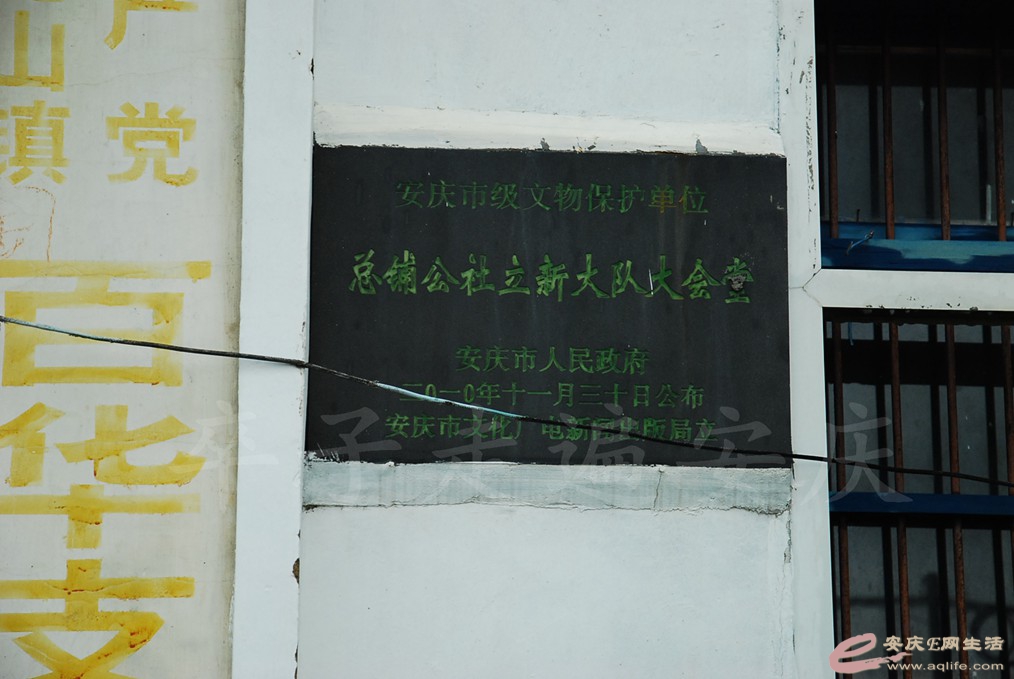 产
山
镇
党
百
花
支
安庆市级文物保护单位
总铺公社立新大队大会堂
安庆市人民政府
二〇一〇年十一月三十日公布
安庆市文化广电新闻出版局立
卒子走遍安庆
安庆E网生活
www.aqlife.com